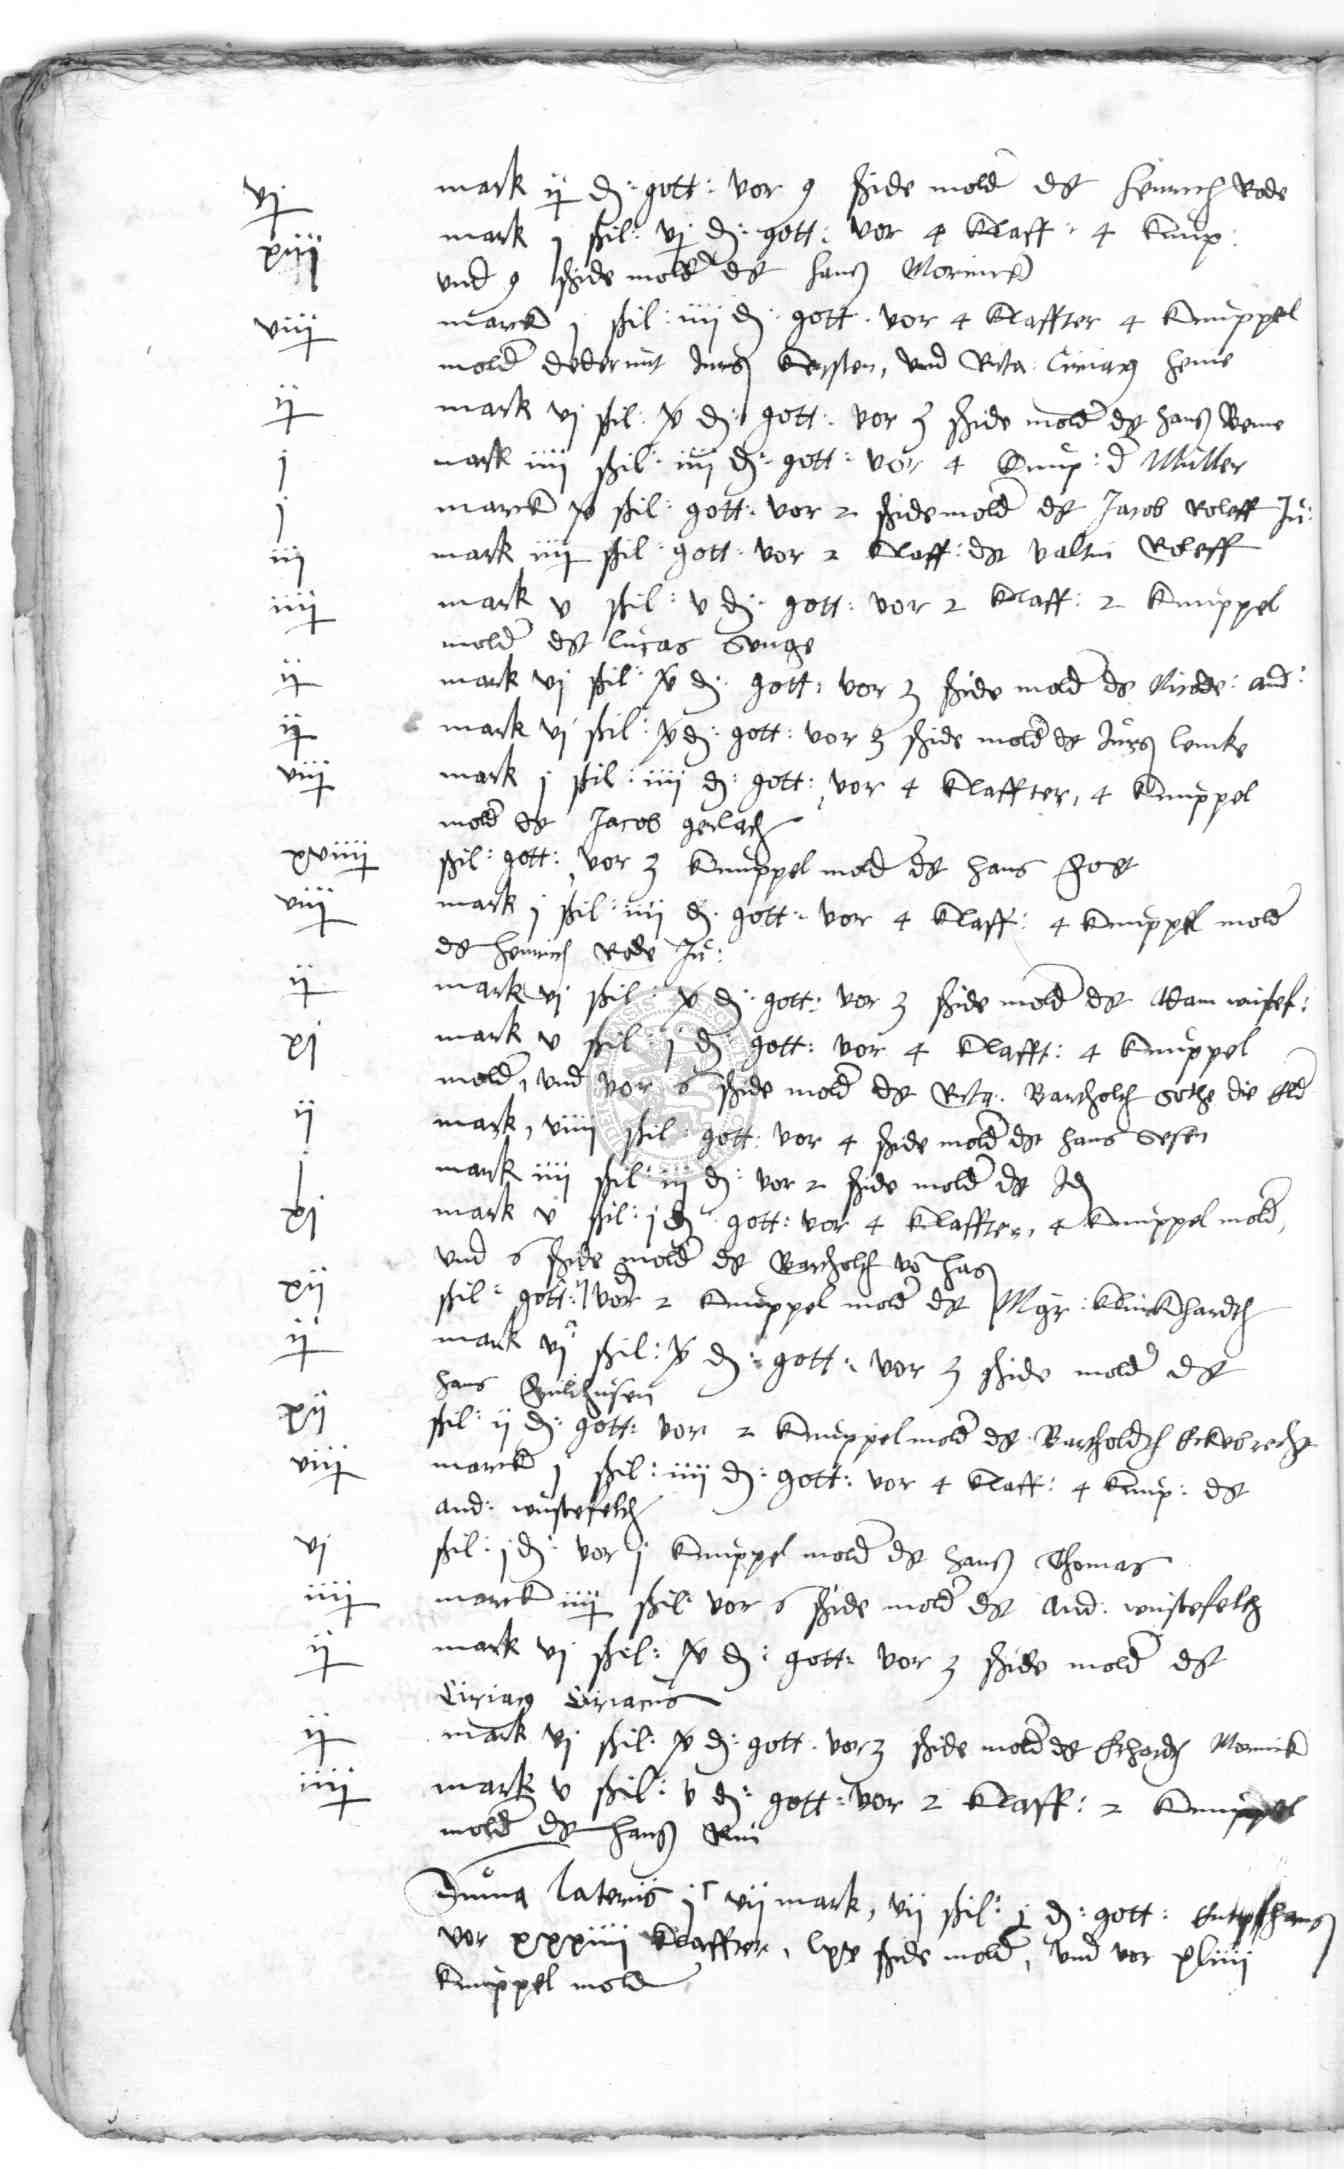 vj mark ij d: gott: vor 9 schide mold ds Henrich Rode
xiiij mark j schil: vj d: gott: vor 4 klaff: 4 knup:
vnd 9 schide mold ds Hans
viij marck j schil: iiij d: gott: vor 4 klaffter 4 knuppel
mold dederunt Kersten, vnd Ciriacq heine
ij mark vj schil: x d: gott: vor 3 schide mold ds Hans
j mark iiij schil: iiij d: gott: vor 4 knup: d Muller
j marck x schil: gott: vor 2 schide mold ds Jacob Roleff Ju:
iij mark iiij schil: gott: vor 2 klaff: ds Valtin Roleff
iiij mark v schil: v d: gott: vor 2 klaff: 2 knuppel
mold ds Lucas
ij mark vj schil: x d: gott: vor 3 schide mold ds and:
ij mark vj schil: x d: gott: vor 3 schide mold ds Lemke
viij mark j schil: iiij d: gott: vor 4 klaffter, 4 knuppel
mold ds Jacob gerlach
xviiij schil: gott: vor 3 knuppel mold ds Hans
viij mark j schil: iiij d: gott: vor 4 klaff: 4 knuppel mold
ds Henrich Rode Ju:
ij mark vj schil: x d: gott: vor 3 schide mold ds Adam wustef:
xj mark v schil: j d: gott: vor 4 klafft: 4 knuppel
mold, vnd vor 6 schide mold ds Bartholch die
ij mark, viiij schil: gott: vor 4 schide mold ds Hans
j mark iiij schil: iij d: vor 2 schide mold ds Id
xj mark v schil: j d: gott: vor 4 klaffter, 4 knuppel mold,
vnd 6 schide mold ds Bartholch
xij schil: gott: vor 2 knuppel mold ds Mgr: Klinckhardth
ij mark vj schil: x d: gott: vor 3 schide mold ds
Hans
xij schil: ij d: gott: vor 2 knuppel mold ds Bartholdth
viij marck j schil: iiij d: gott: vor 4 klaff: 4 knup: ds
and: wustefelth
vj schil: j d: vor j knuppel mold ds Hans Thomas
iiij marck iiij schil: vor 6 schide mold ds And: wustefelth
ij mark vj schil: x d: gott: vor 3 schide mold ds
Ciriacq Ciriacus
ij mark vj schil: x d: gott: vor 3 schide mold ds
iiij mark v schil: v d: gott: vor 2 klaff: 2 knuppel
mold ds Hans
Suma lateris jc vij mark, vij schil: j d: gott:
vor xxxiiij klaffter, lxx schide mold, vnd vor xliiij
knuppel mold